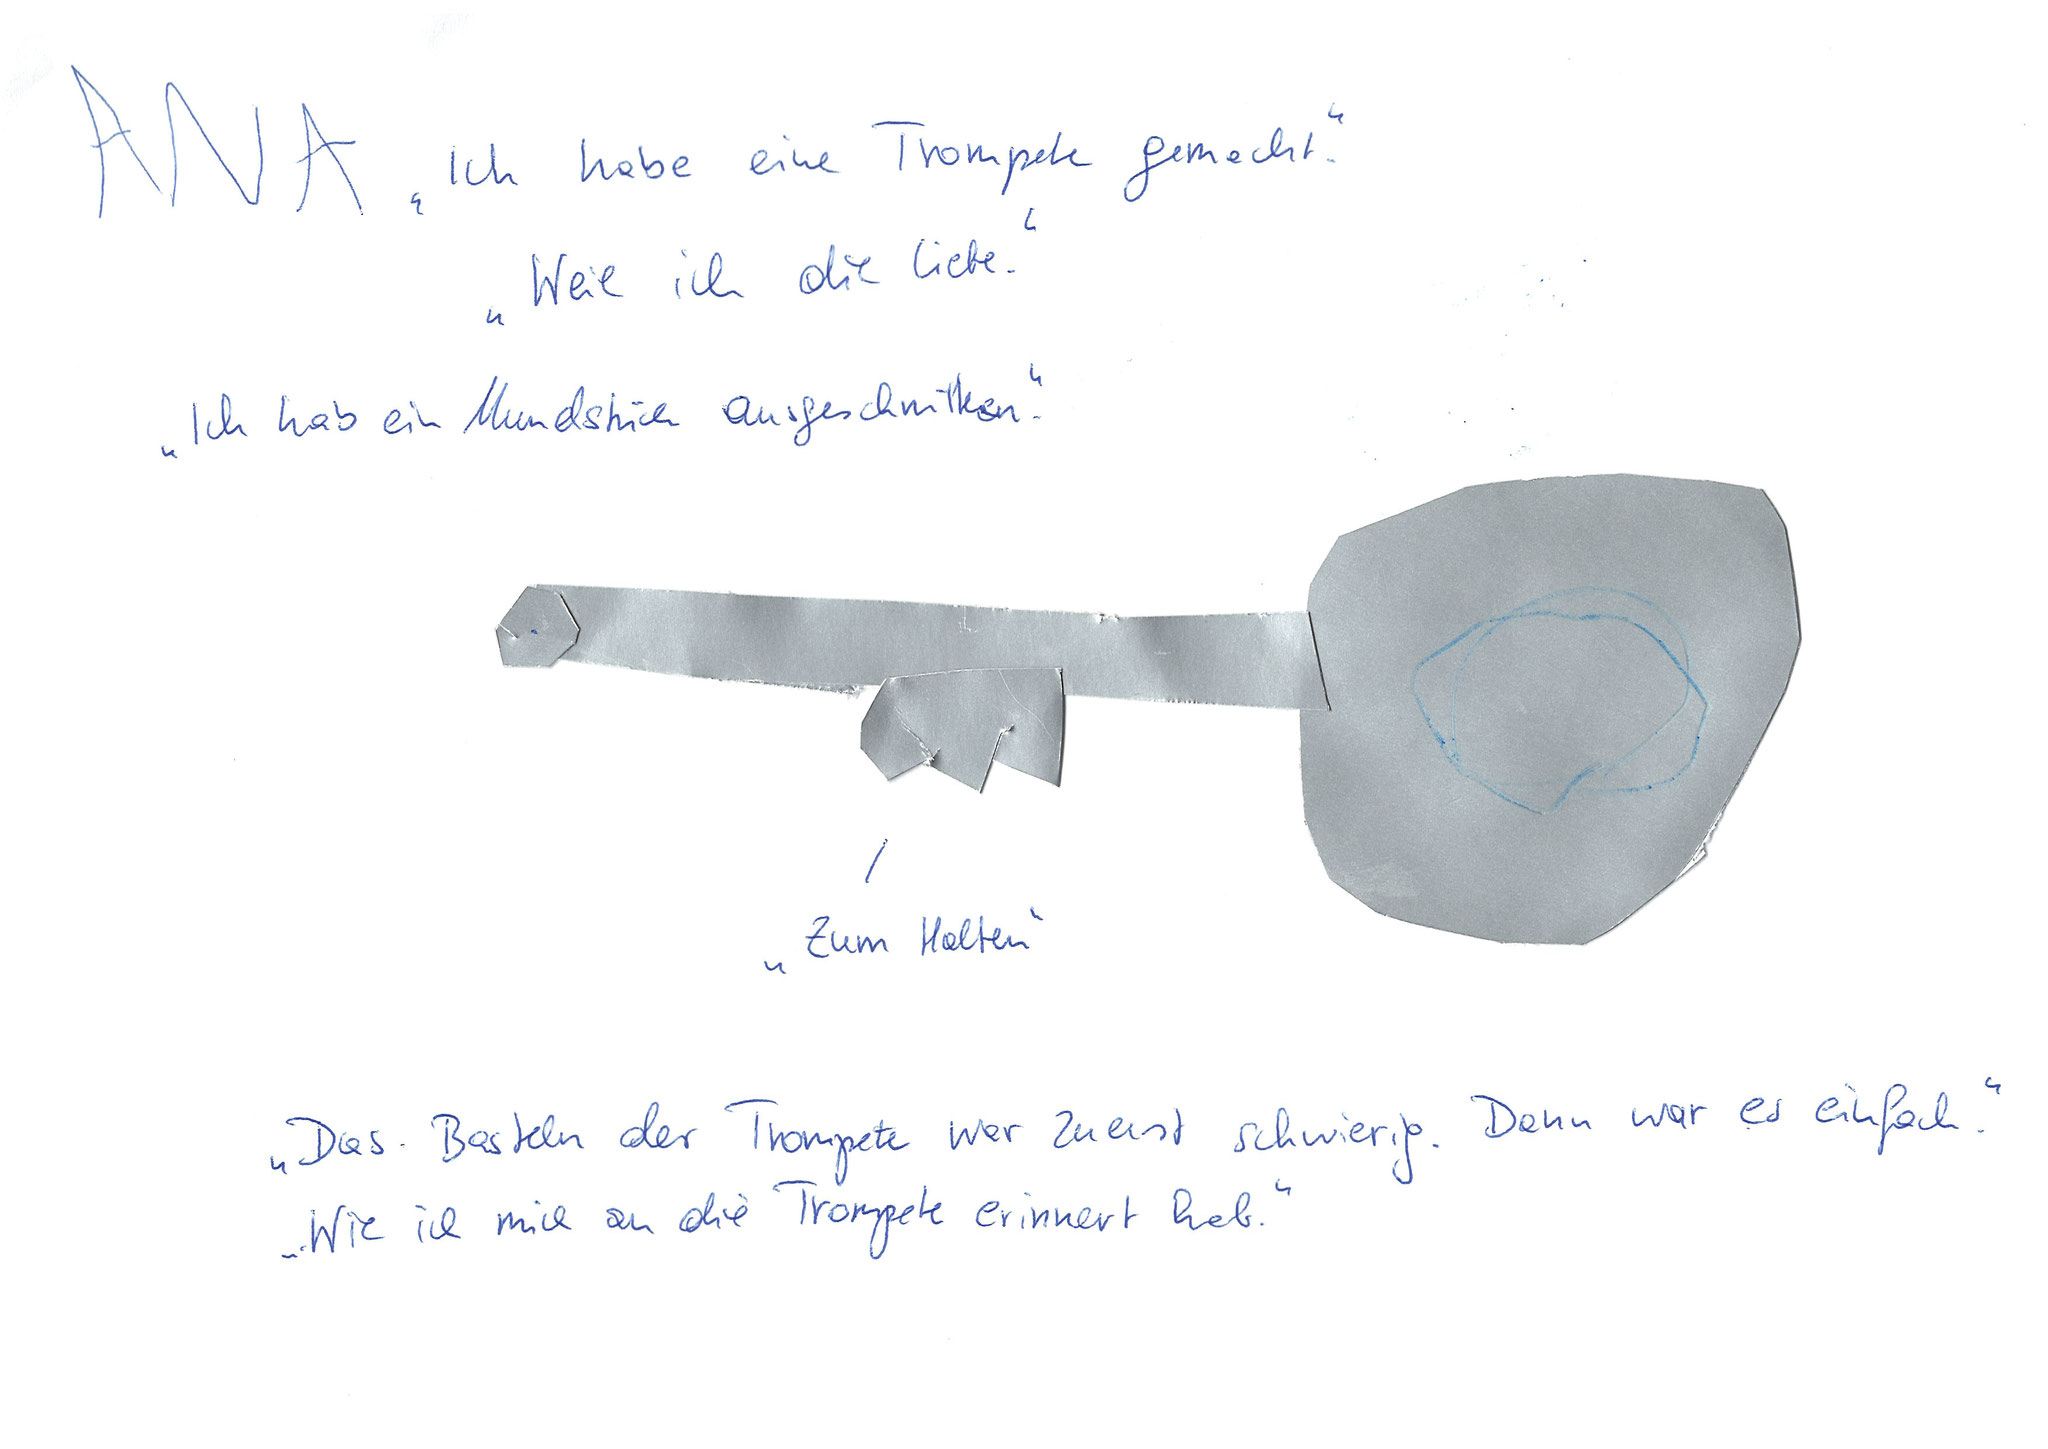 ANA „Ich habe eine Trompete gemacht.“
„Weil ich die liebe.“
„Ich hab ein Mundstück ausgeschnitten.“
„Zum Halten“
„Das Basteln der Trompete war zuerst schwierig. Dann war es einfach.“
„Wie ich mich an die Trompete erinnert hab.“